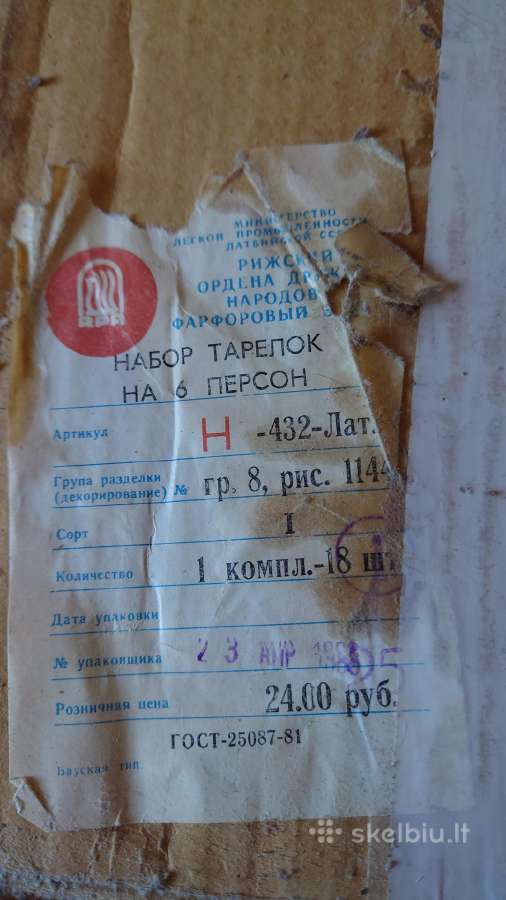 МИНИСТЕРСТВО
ЛЕГКОЙ ПРОМЫШЛЕННОСТИ
ЛАТВИЙСКОЙ ССР
РИЖСКИЙ
ОРДЕНА ДРУЖ
НАРОДОВ
ФАРФОРОВЫЙ
НАБОР ТАРЕЛОК
НА 6 ПЕРСОН
Артикул Н -432-Лат.
Група разделки
(декорирование) № гр. 8, рис. 1144
Сорт I
Количество 1 компл.-18 шт
Дата упаковки
№ упаковщика 23 АПР
Розничная цена 24.00 руб.
ГОСТ-25087-81
Бауская тип.
skelbiu.lt